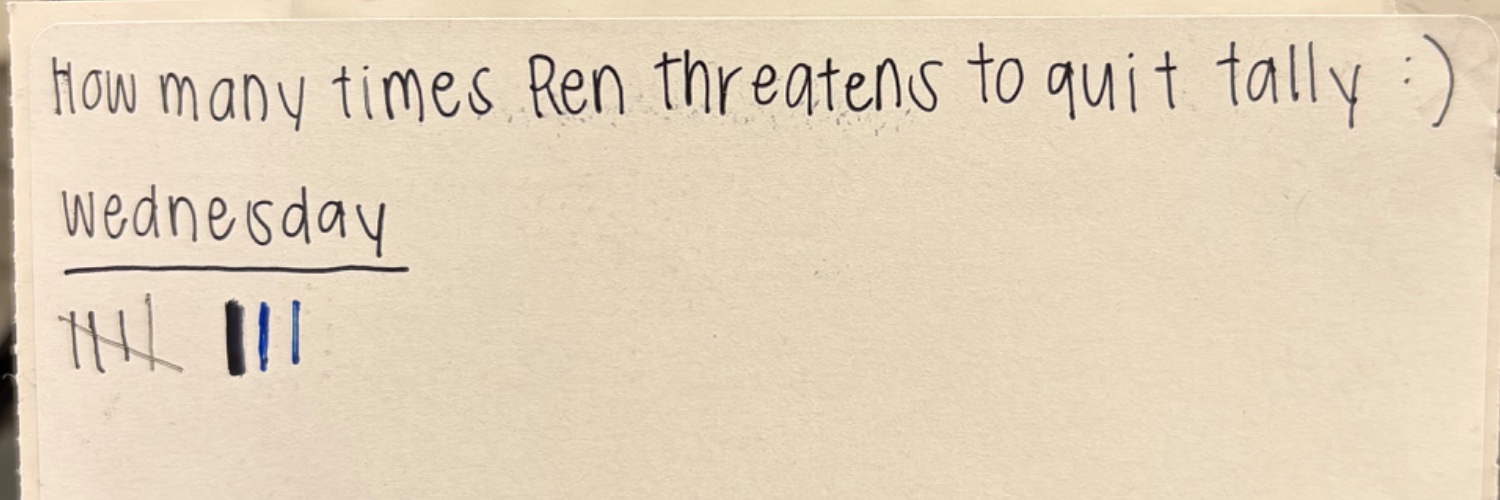 How many times Ren threatens to quit tally :)
wednesday